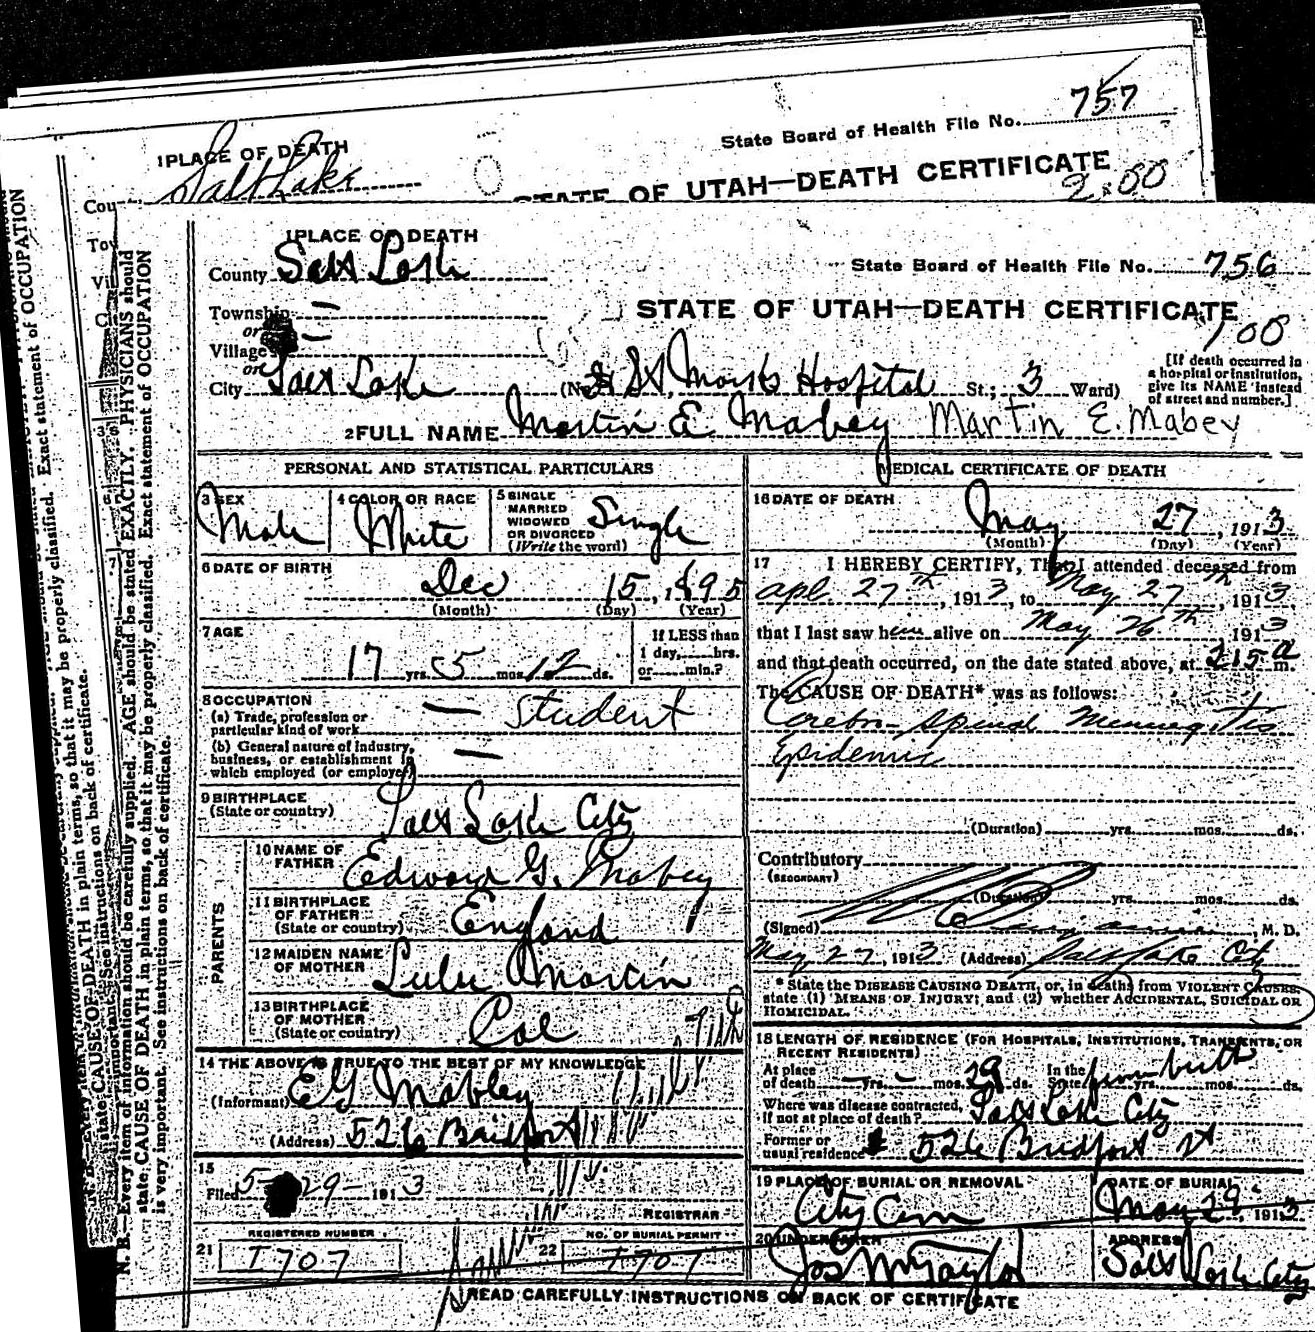 State Board of Health File No. 757
1 PLACE OF DEATH
Salt Lake
STATE OF UTAH—DEATH CERTIFICATE
2.00
1 PLACE OF DEATH
County Salt Lake
State Board of Health File No. 756
Township —
or
STATE OF UTAH—DEATH CERTIFICATE
100
Village —
or
City Salt Lake (No. St Marks Hospital St.; 3 Ward)
[If death occurred in
a hospital or institution,
give its NAME instead
of street and number.]
2 FULL NAME Martin E Mabey Martin E. Mabey
PERSONAL AND STATISTICAL PARTICULARS
3 SEX
Male
4 COLOR OR RACE
White
5 SINGLE
MARRIED
WIDOWED
OR DIVORCED
(Write the word)
Single
6 DATE OF BIRTH
Dec 15, 1895
(Month) (Day) (Year)
7 AGE
17 yrs. 5 mos. 12 ds.
If LESS than
1 day, hrs.
or min.?
8 OCCUPATION
(a) Trade, profession or
particular kind of work — Student
(b) General nature of industry,
business, or establishment in
which employed (or employer) —
9 BIRTHPLACE
(State or country) Salt Lake City
PARENTS
10 NAME OF
FATHER Edward G. Mabey
11 BIRTHPLACE
OF FATHER
(State or country) England
12 MAIDEN NAME
OF MOTHER Lulu Martin
13 BIRTHPLACE
OF MOTHER
(State or country) Cal
14 THE ABOVE IS TRUE TO THE BEST OF MY KNOWLEDGE
(Informant) E G Mabey
(Address) 526 Bridport
15
Filed 5-29-1913
REGISTRAR
21 REGISTERED NUMBER
I 707
22 NO. OF BURIAL PERMIT
I 707
MEDICAL CERTIFICATE OF DEATH
16 DATE OF DEATH
May 27, 1913
(Month) (Day) (Year)
17 I HEREBY CERTIFY, That I attended deceased from
Apl 27th, 1913, to May 27th, 1913,
that I last saw him alive on May 26th, 1913
and that death occurred, on the date stated above, at 215 a m.
The CAUSE OF DEATH* was as follows:
Cerebro-Spinal Meningitis
Epidemic
(Duration) yrs. mos. ds.
Contributory
(SECONDARY)
(Duration) yrs. mos. ds.
(Signed) , M. D.
May 27, 1913 (Address) Salt Lake City
* State the DISEASE CAUSING DEATH, or, in deaths from VIOLENT CAUSES,
state (1) MEANS OF INJURY; and (2) whether ACCIDENTAL, SUICIDAL OR
HOMICIDAL.
18 LENGTH OF RESIDENCE (FOR HOSPITALS, INSTITUTIONS, TRANSIENTS, OR
RECENT RESIDENTS)
At place
of death — yrs. — mos. 29 ds. In the
State from birth yrs. mos. ds.
Where was disease contracted,
if not at place of death? Salt Lake City
Former or
usual residence 526 Bridport St
19 PLACE OF BURIAL OR REMOVAL
City Cem
DATE OF BURIAL
May 29, 1913
20 UNDERTAKER
Jos Wm Taylor
ADDRESS
Salt Lake City
READ CAREFULLY INSTRUCTIONS ON BACK OF CERTIFICATE
N. B.—Every item of information should be carefully supplied. AGE should be stated EXACTLY. PHYSICIANS should
state CAUSE OF DEATH in plain terms, so that it may be properly classified. Exact statement of OCCUPATION
is very important. See instructions on back of certificate.